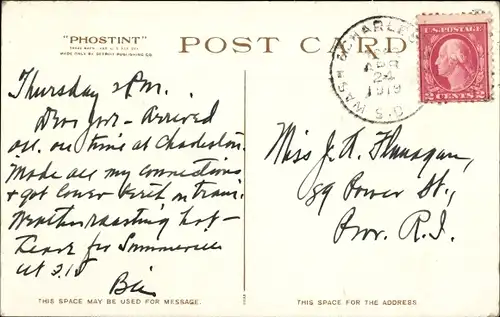 "PHOSTINT"
TRADE MARK
MADE ONLY BY DETROIT PUBLISHING CO.
POST CARD
U.S. POSTAGE
2 CENTS 2
CHARLES
WASH
APR
24
1919
S.C.
Thursday 2 P.M.
Dear Jor - Arrived
all on time at Charleston.
Made all my connections
+ got lower berth on train.
Weather roasting hot -
Leave for Summerville
at 3.15
Bill
Miss J. A. Flanagan,
89 Power St.,
Prov. R.I.
THIS SPACE MAY BE USED FOR MESSAGE.
THIS SPACE IS FOR THE ADDRESS.